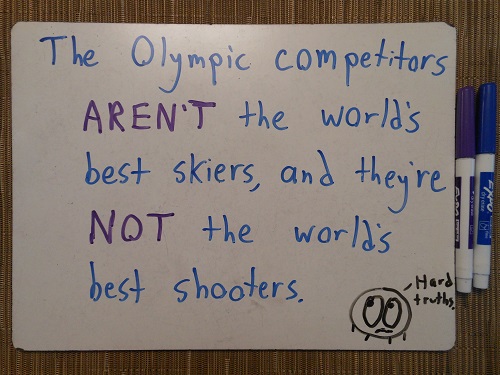 The Olympic competitors
AREN'T the world's
best skiers, and they're
NOT the world's
best shooters.
Hard
truths.
EXPO